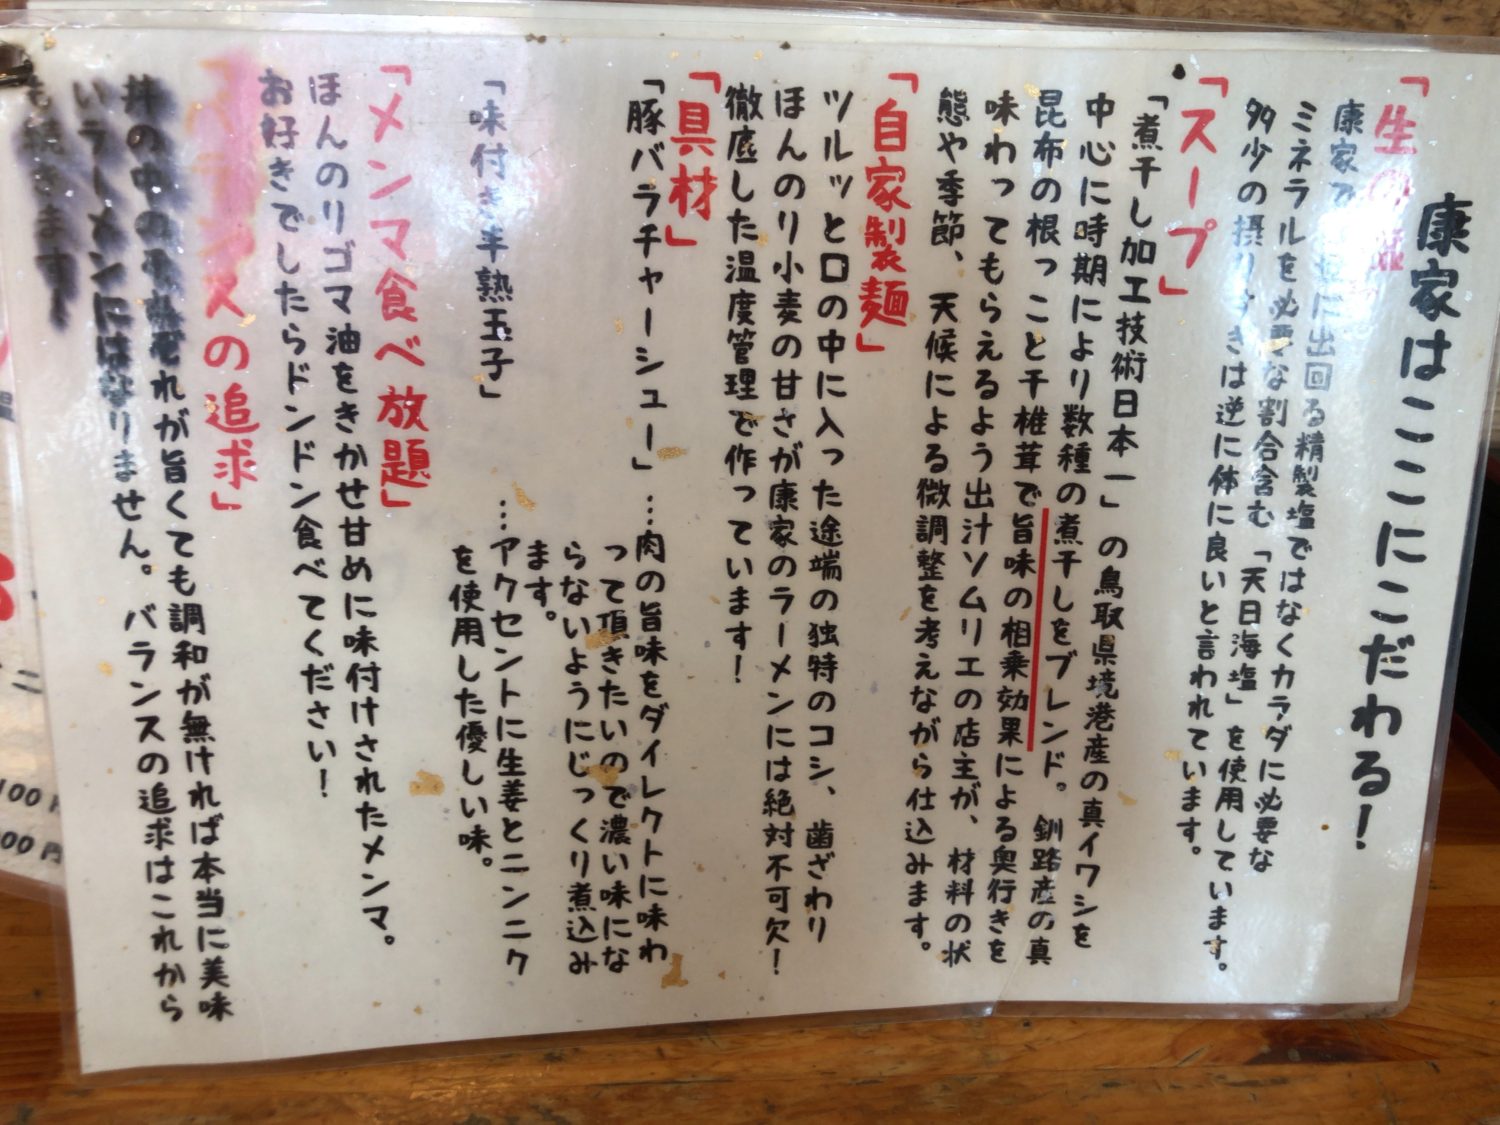 康家はここにこだわる！
「生の塩
康家で に出回る精製塩ではなくカラダに必要な
ミネラルを必要な割合含む「天日海塩」を使用しています。
多少の摂りすぎは逆に体に良いと言われています。
「スープ」
「煮干し加工技術日本一」の鳥取県境港産の真イワシを
中心に時期により数種の煮干しをブレンド。釧路産の真
昆布の根っこと干椎茸で旨味の相乗効果による奥行きを
味わってもらえるよう出汁ソムリエの店主が、材料の状
態や季節、天候による微調整を考えながら仕込みます。
「自家製麺」
ツルッと口の中に入った途端の独特のコシ、歯ざわり
ほんのり小麦の甘さが康家のラーメンには絶対不可欠！
徹底した温度管理で作っています！
「具材」
「豚バラチャーシュー」…肉の旨味をダイレクトに味わ
って頂きたいので濃い味にな
らないようにじっくり煮込み
ます。
「味付き半熟玉子」…アクセントに生姜とニンニク
を使用した優しい味。
「メンマ食べ放題」
ほんのりゴマ油をきかせ甘めに味付けされたメンマ。
お好きでしたらドンドン食べてください！
スの追求」
丼の中の それが旨くても調和が無ければ本当に美味
いラーメンにはなりません。バランスの追求はこれから
も続きます！
100円
00円